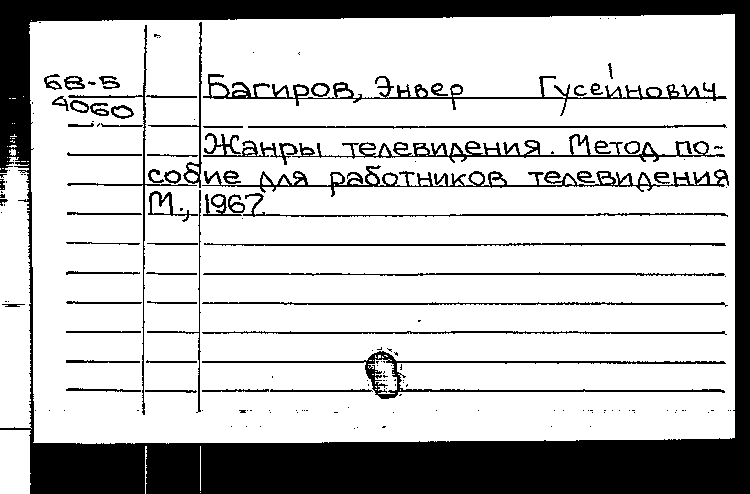 68-5
4060
Багиров, Энвер Гусейнович
Жанры телевидения. Метод по-
собие для работников телевидения
М., 1967.